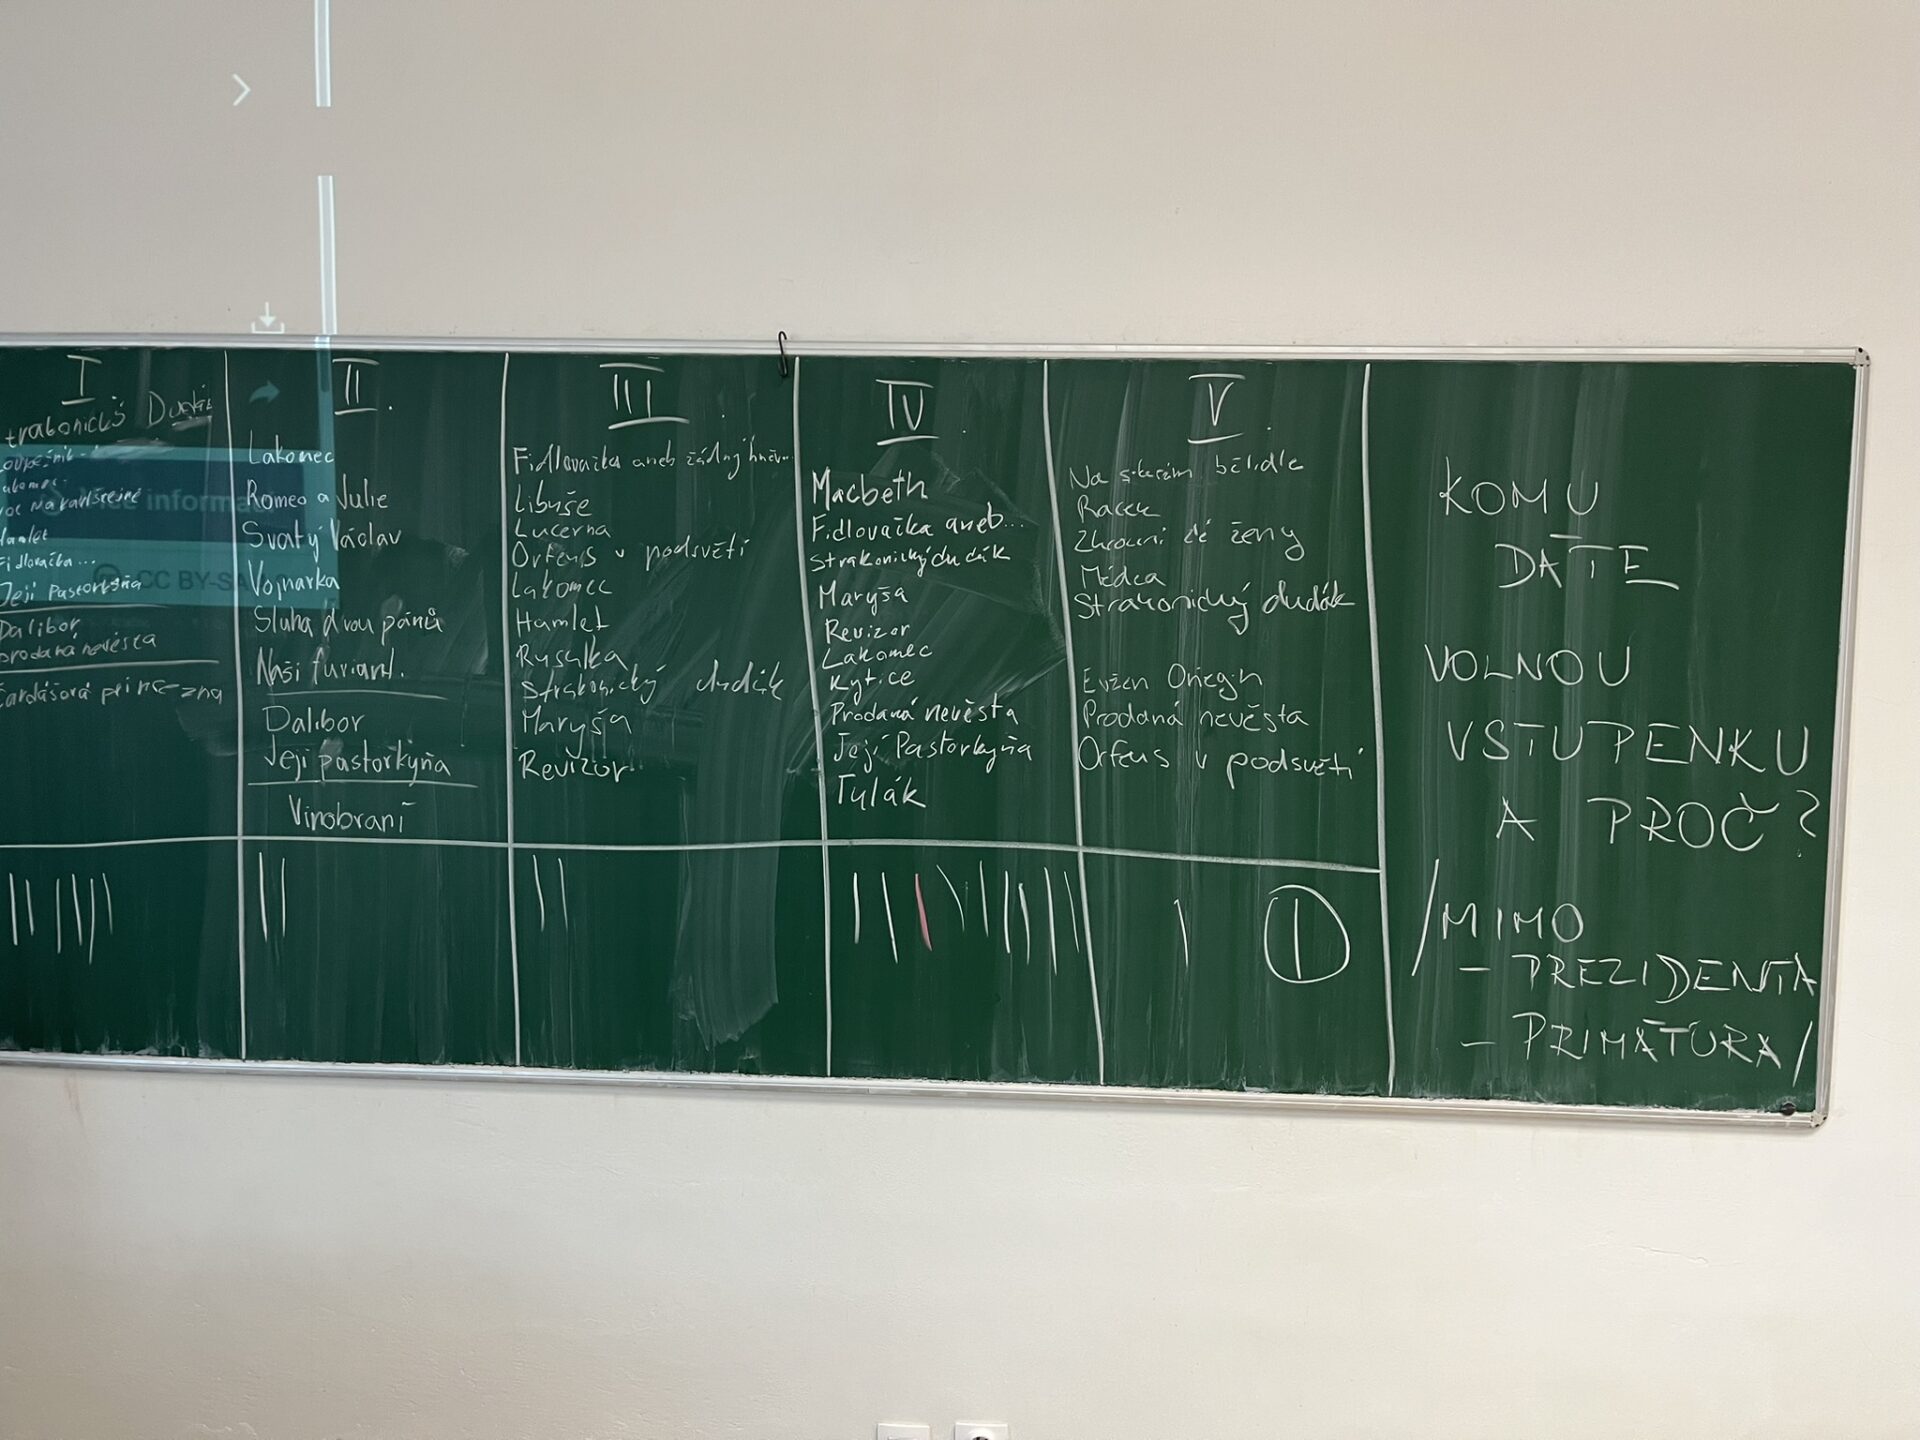 I
Dudák
Hamlet
Fidlovačka...
Její Pastorkyňa
Dalibor
prodaná nevěsta
princezna
více
CC BY-SA
II.
Lakomec
Romeo a Julie
Svatý Václav
Vojnarka
Sluha dvou pánů
Naši furiant.
Dalibor
Její pastorkyňa
Vinobraní
III.
Fidlovačka aneb žádný hněv...
Libuše
Lucerna
Orfeus v podsvětí
Lakomec
Hamlet
Rusalka
Strakonický dudák
Maryša
Revizor
IV.
Macbeth
Fidlovačka aneb...
Strakonický dudák
Maryša
Revizor
Lakomec
Kytice
Prodaná nevěsta
Její Pastorkyňa
Tulák
V.
Na starém bělidle
Racek
ženy
Médea
Strakonický dudák
Evžen Oněgin
Prodaná nevěsta
Orfeus v podsvětí
KOMU
DÁTE
VOLNOU
VSTUPENKU
A PROČ?
/MIMO
- PREZIDENTA
- PRIMÁTORA/